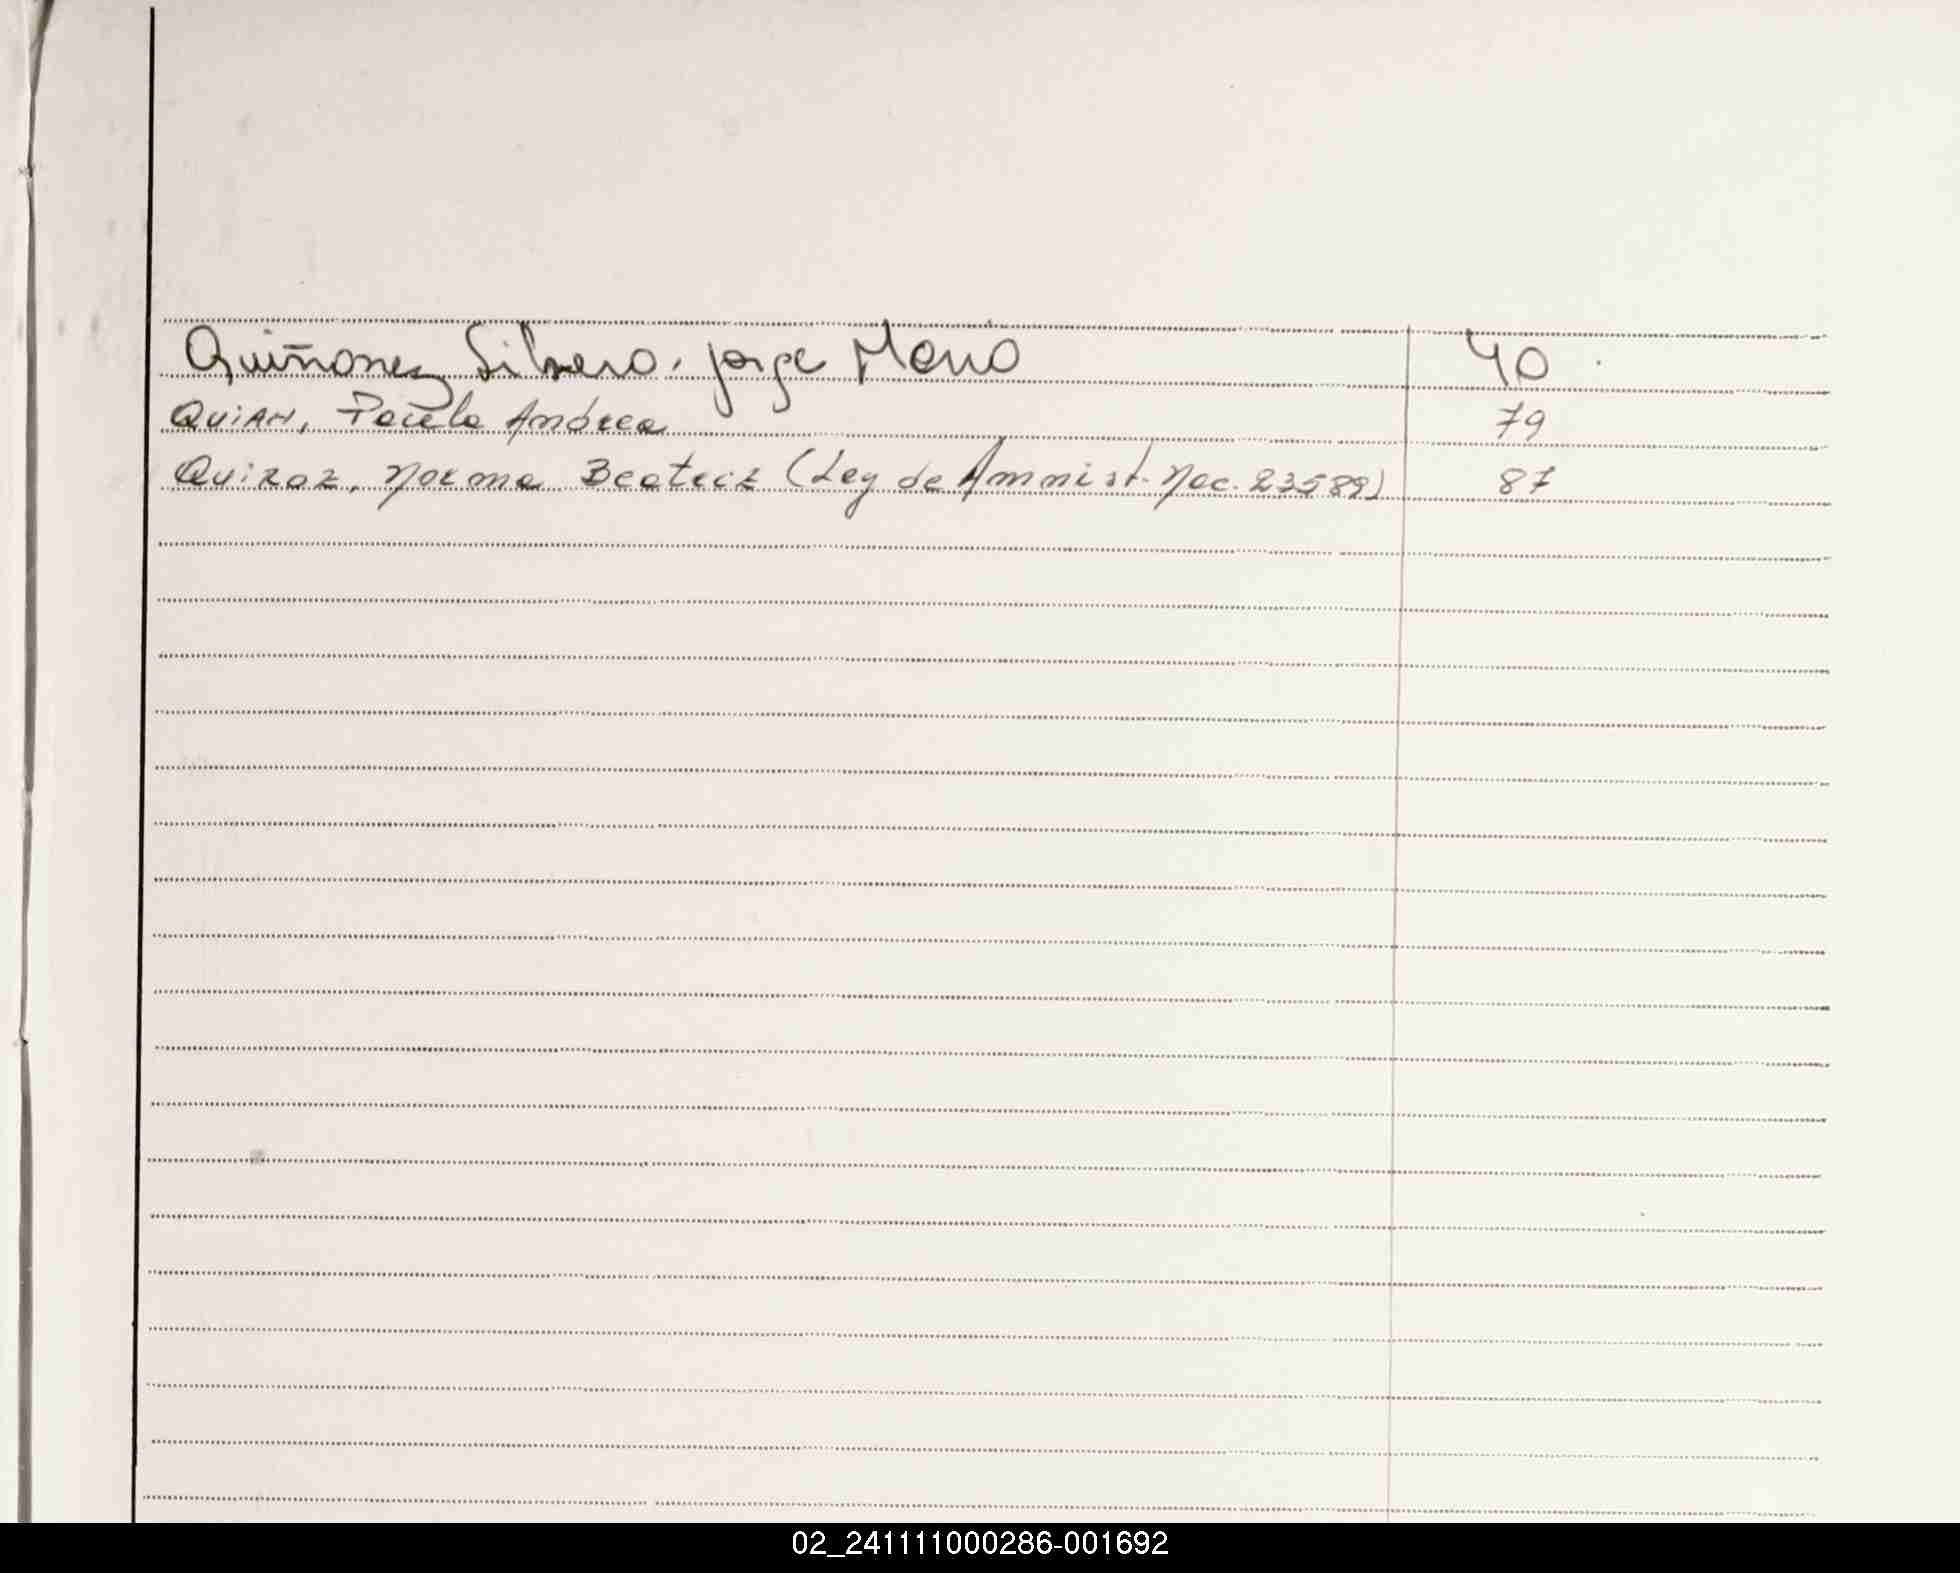 Quiñonez Silvero, Jorge Mario 40
Quian, Paula Andrea 79
Quiroz, Norma Beatriz (Ley de Amnist. Nac. 23589) 87
02_241111000286-001692